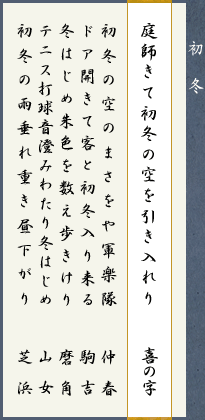 初冬
庭師きて初冬の空を引き入れり 喜の字
初冬の空のまさをや軍楽隊 仲春
ドア開きて客と初冬入り来る 駒吉
冬はじめ朱色を数え歩きけり 磨角
テニス打球音澄みわたり冬はじめ 山女
初冬の雨垂れ重き昼下がり 芝浜